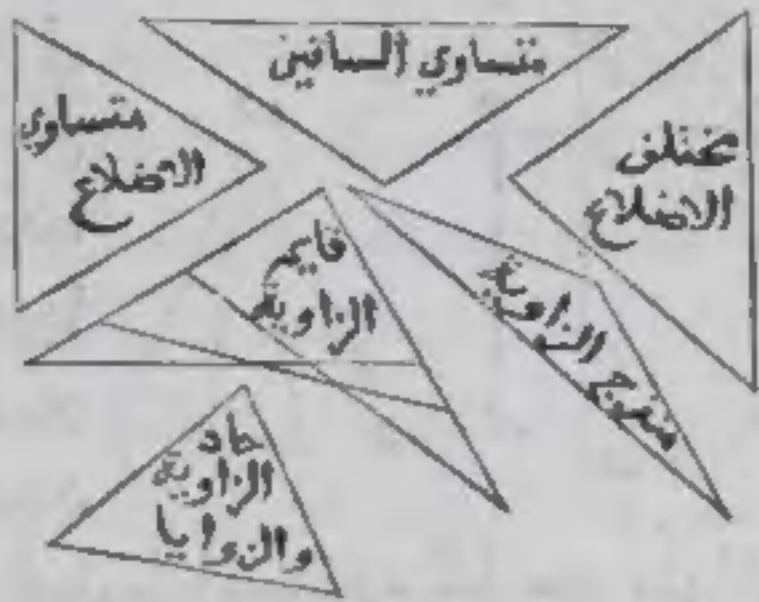 متساوي الساقين
مختلف
الاضلاع
متساوي
الاضلاع
قايم
الزاوية
منفرج الزاوية
حاد
الزاوية
والزوايا